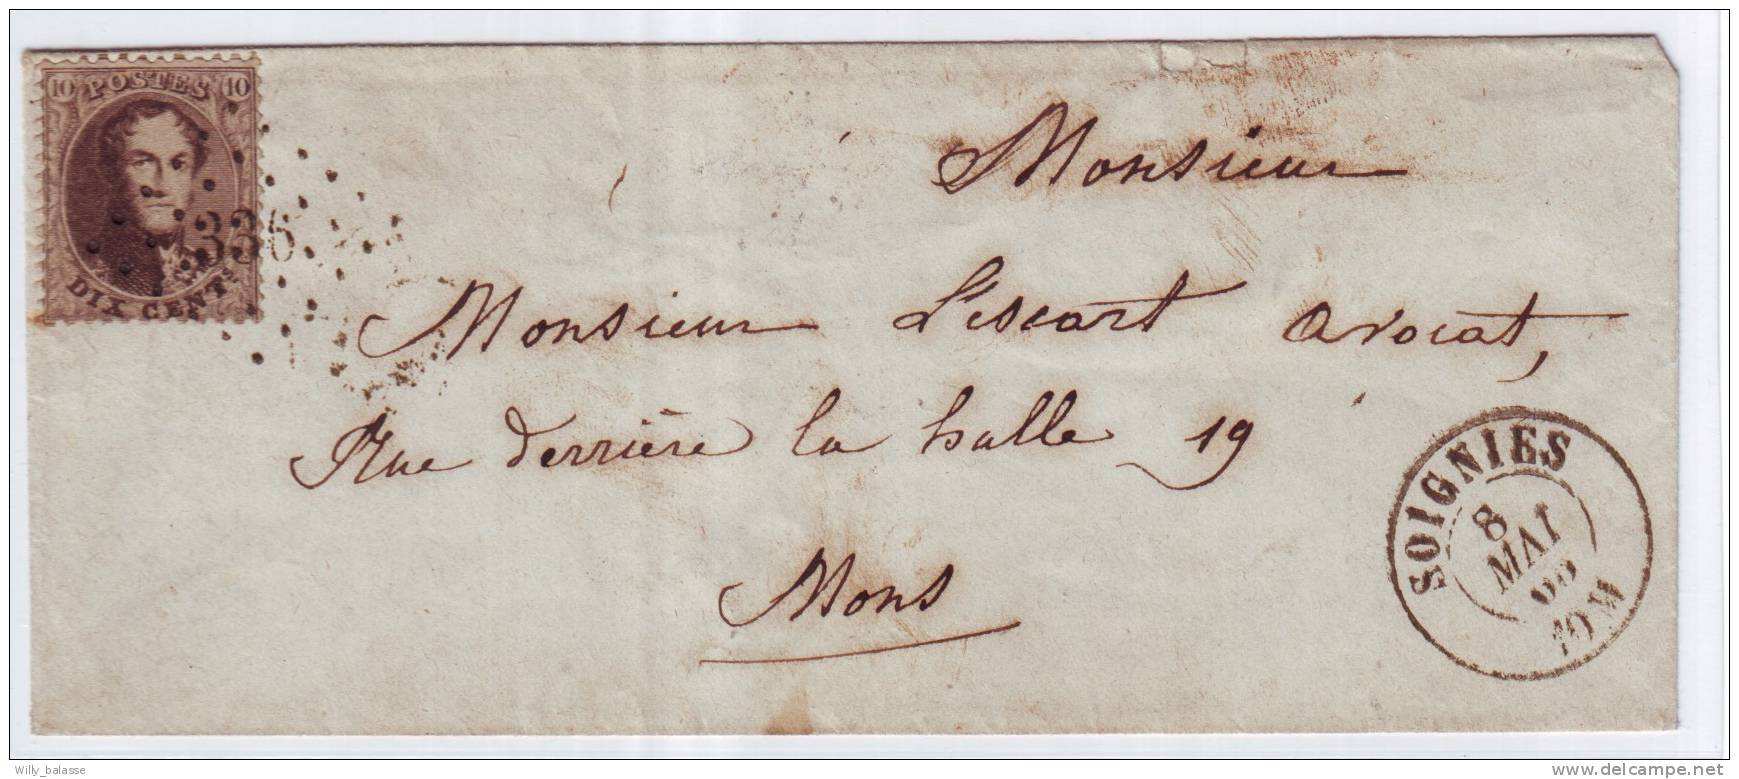 10 POSTES 10
DIX CENTS
336
Monsieur
Monsieur Lescart avocat,
Rue derrière la halle 19
Mons
SOIGNIES
8
MAI
10 M
Willy_balasse
www.delcampe.net